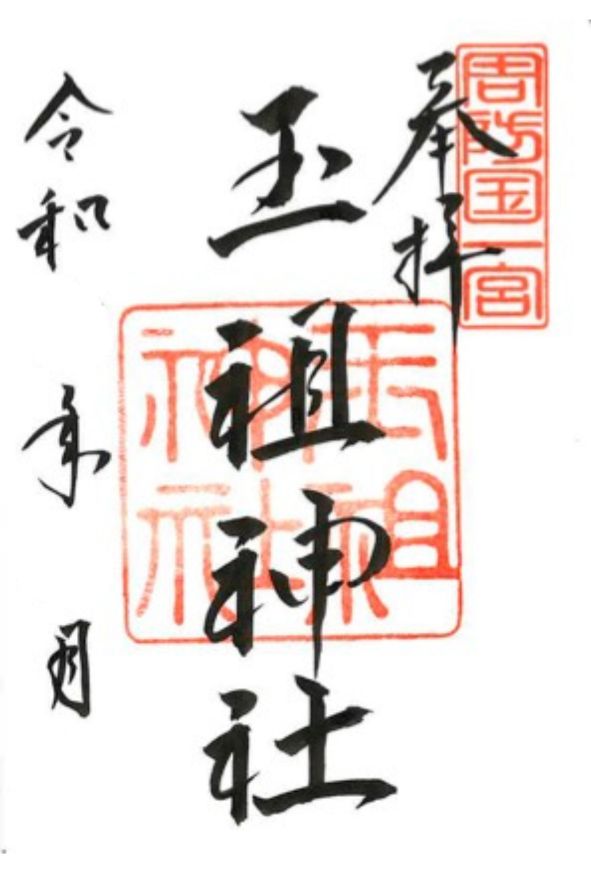 周防国一宮
奉拝
玉祖神社
玉祖神社
令和 年 月